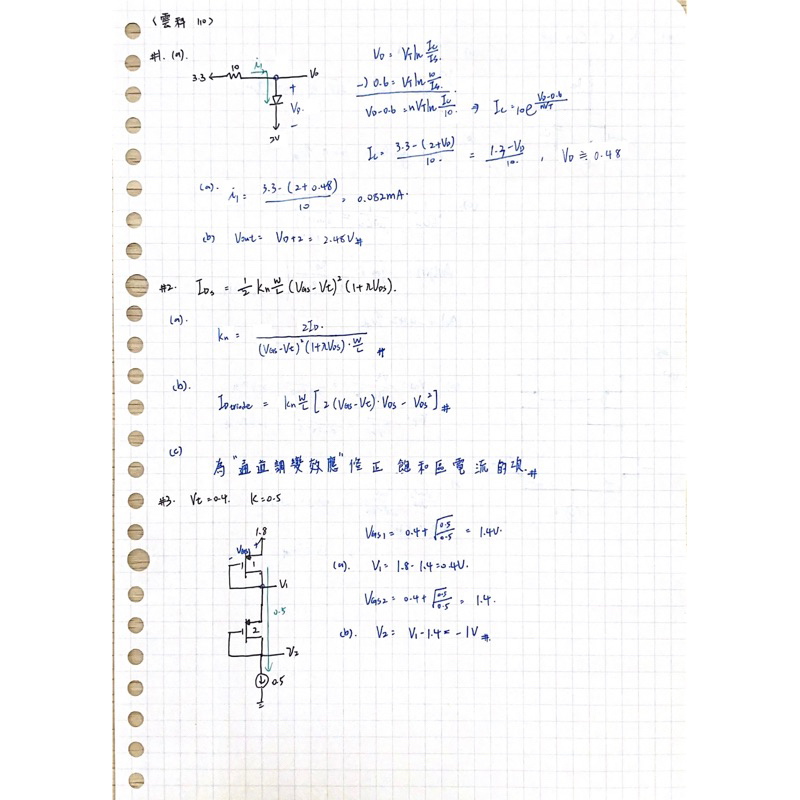 (雲科 110)
#1. (a).
10
i₁
3.3
V₀
+
V_D
-
2V
V_D = V_T ln I_C/I_S.
-) 0.6 = V_T ln 10/I_S.
V_D-0.6 = nV_T ln I_C/10. ⇒ I_C = 10e^((V_D-0.6)/nV_T)
I_C = (3.3-(2+V_D))/10. = (1.3-V_D)/10. , V_D ≒ 0.48
(a). i₁ = (3.3-(2+0.48))/10 = 0.082mA.
(b) Vout = V_D+2 = 2.48V #
#2. I_Ds = 1/2 Kn W/L (V_GS-Vt)² (1+λV_DS).
(a). kn = 2I_D. / ((V_GS-Vt)²(1+λV_DS)·W/L) #
(b). I_Dtriode = kn W/L [2(V_GS-Vt)·V_DS - V_DS²] #
(c) 為"通道調變效應"修正 飽和區電流的項. #
#3. Vt=0.4. K=0.5
1.8
- V_GS1 +
1
V₁
0.5
2
V₂
0.5
V_GS1 = 0.4+√(0.5/0.5) = 1.4V.
(a). V₁ = 1.8-1.4=0.4V.
V_GS2 = 0.4+√(0.5/0.5) = 1.4.
(b). V₂ = V₁-1.4 = -1V #